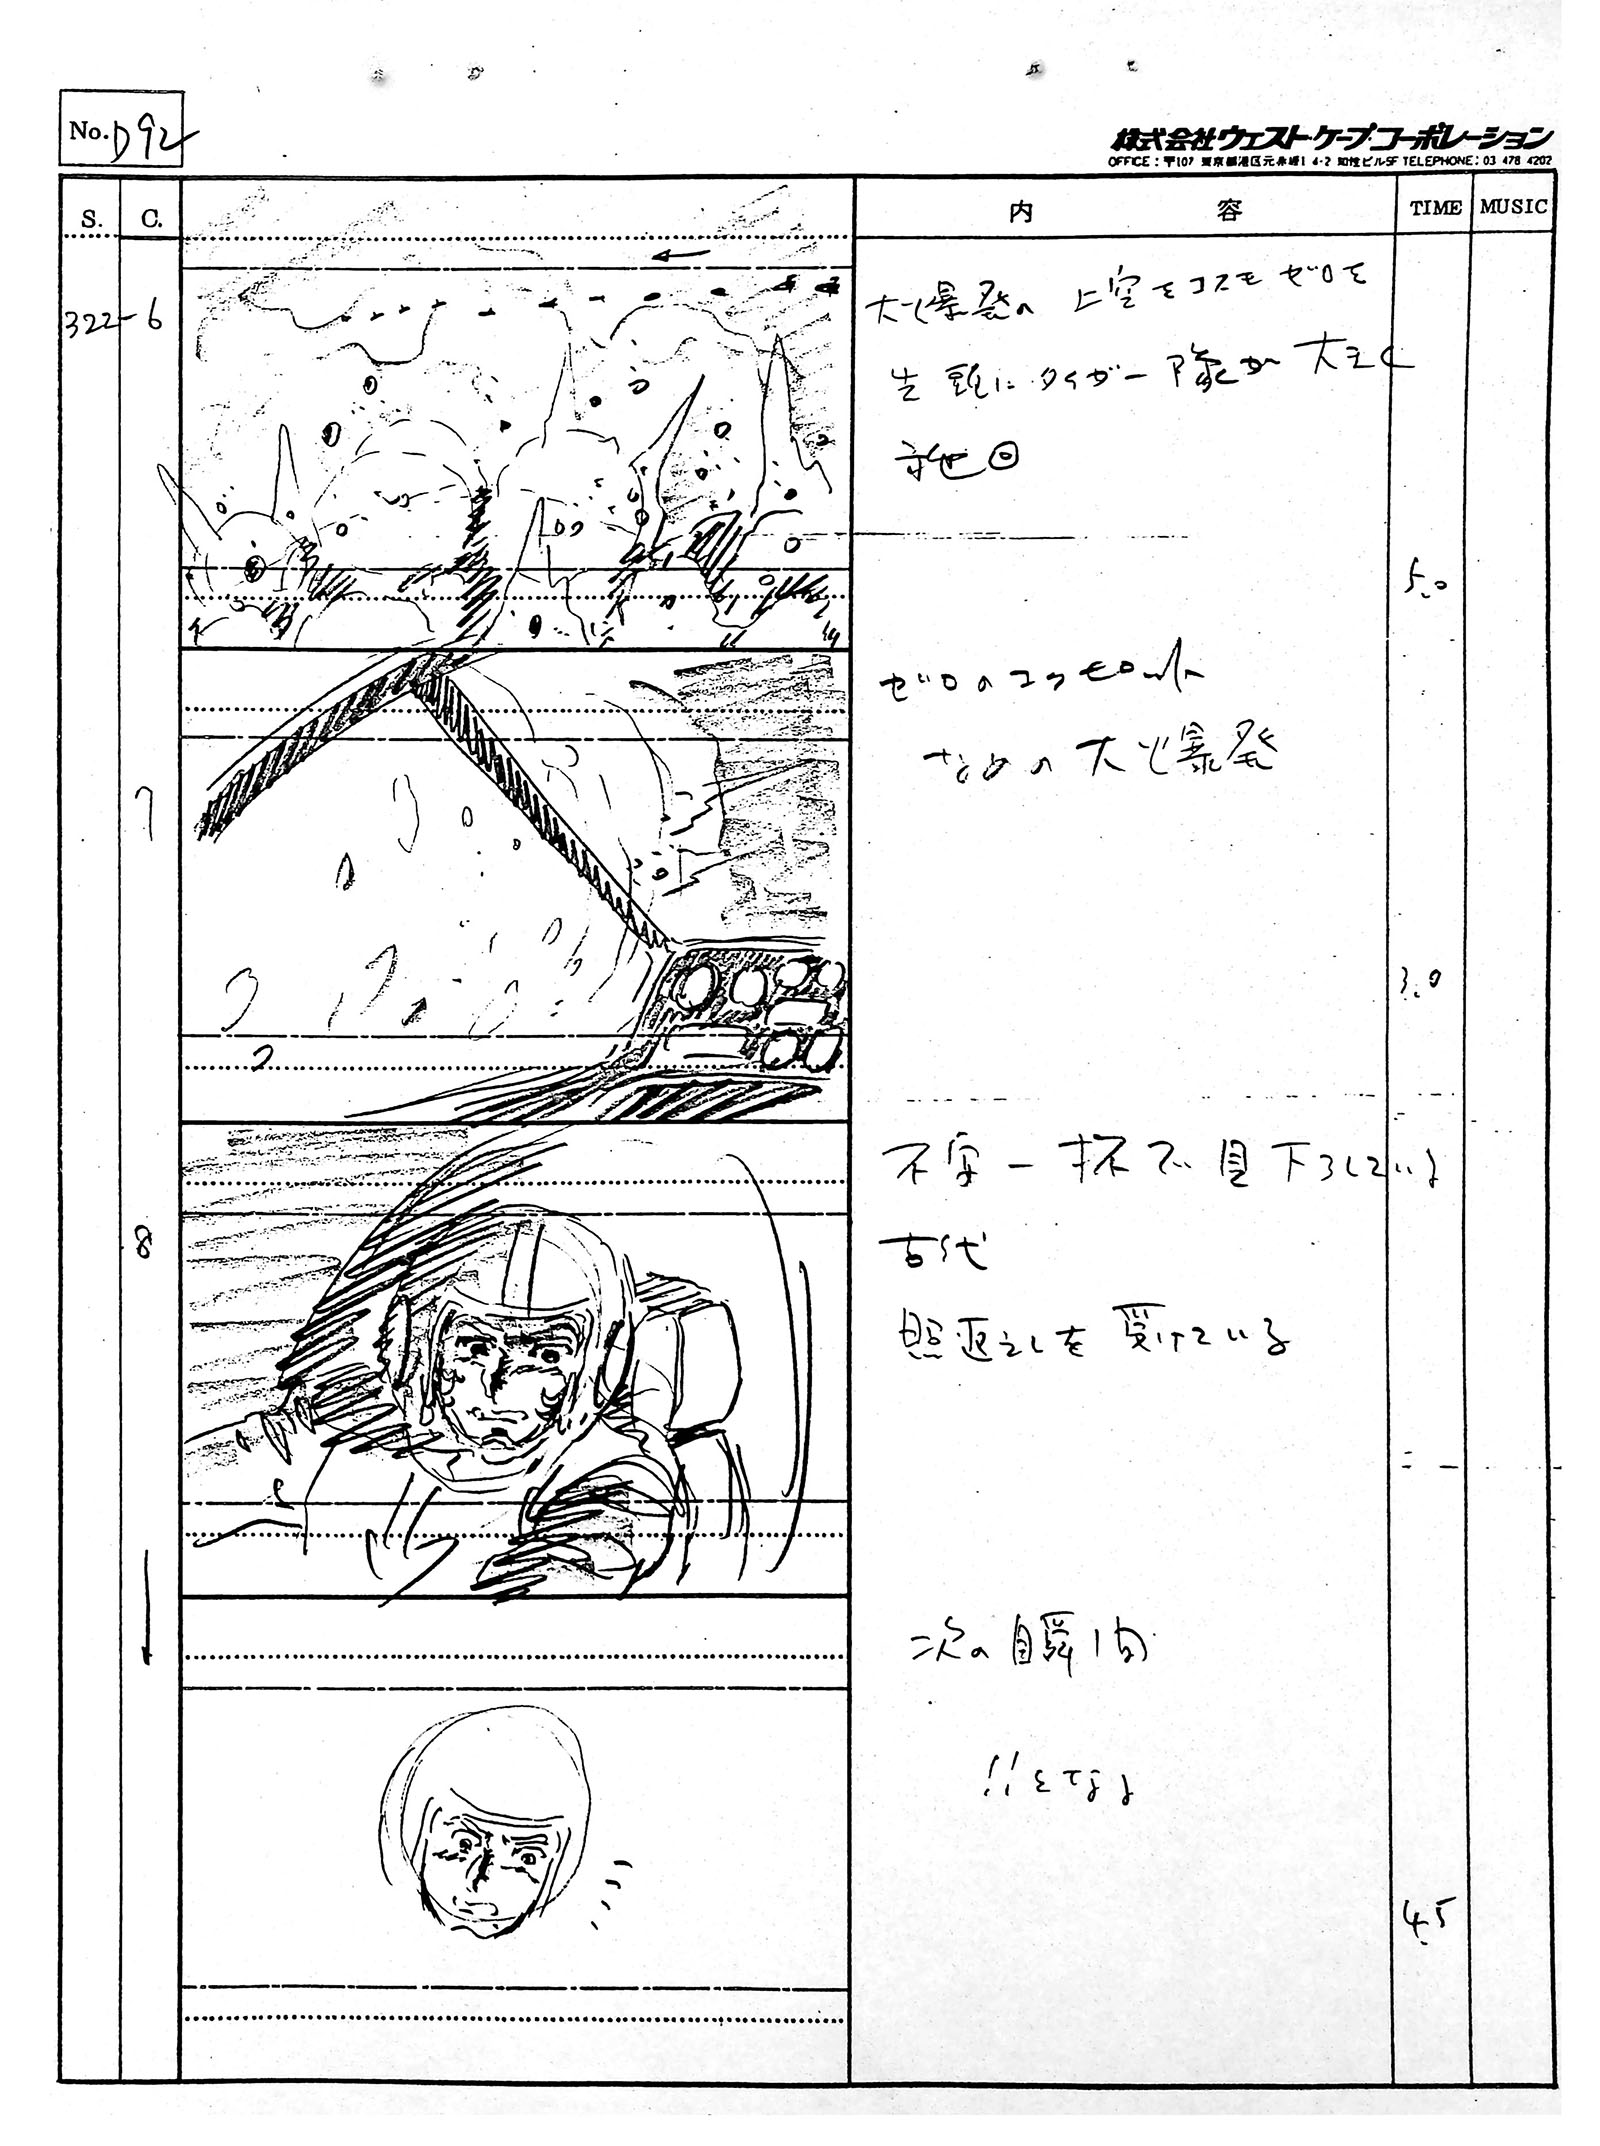 No. D92
株式会社ウェスト・ケープ・コーポレーション
OFFICE : 〒107 東京都港区元赤坂1 4-2 知性ビル5F TELEPHONE: 03 478 4202
S. C. 内容 TIME MUSIC
322-6
大爆発の 上空をコスモゼロを
先頭にタイガー隊が 大きく
旋回
5.0
7
ゼロのコックピット
なめの 大爆発
3.0
8
不安一杯で見下ろしている
古代
照返えしを受けている
次の瞬間
!!となる
4.5